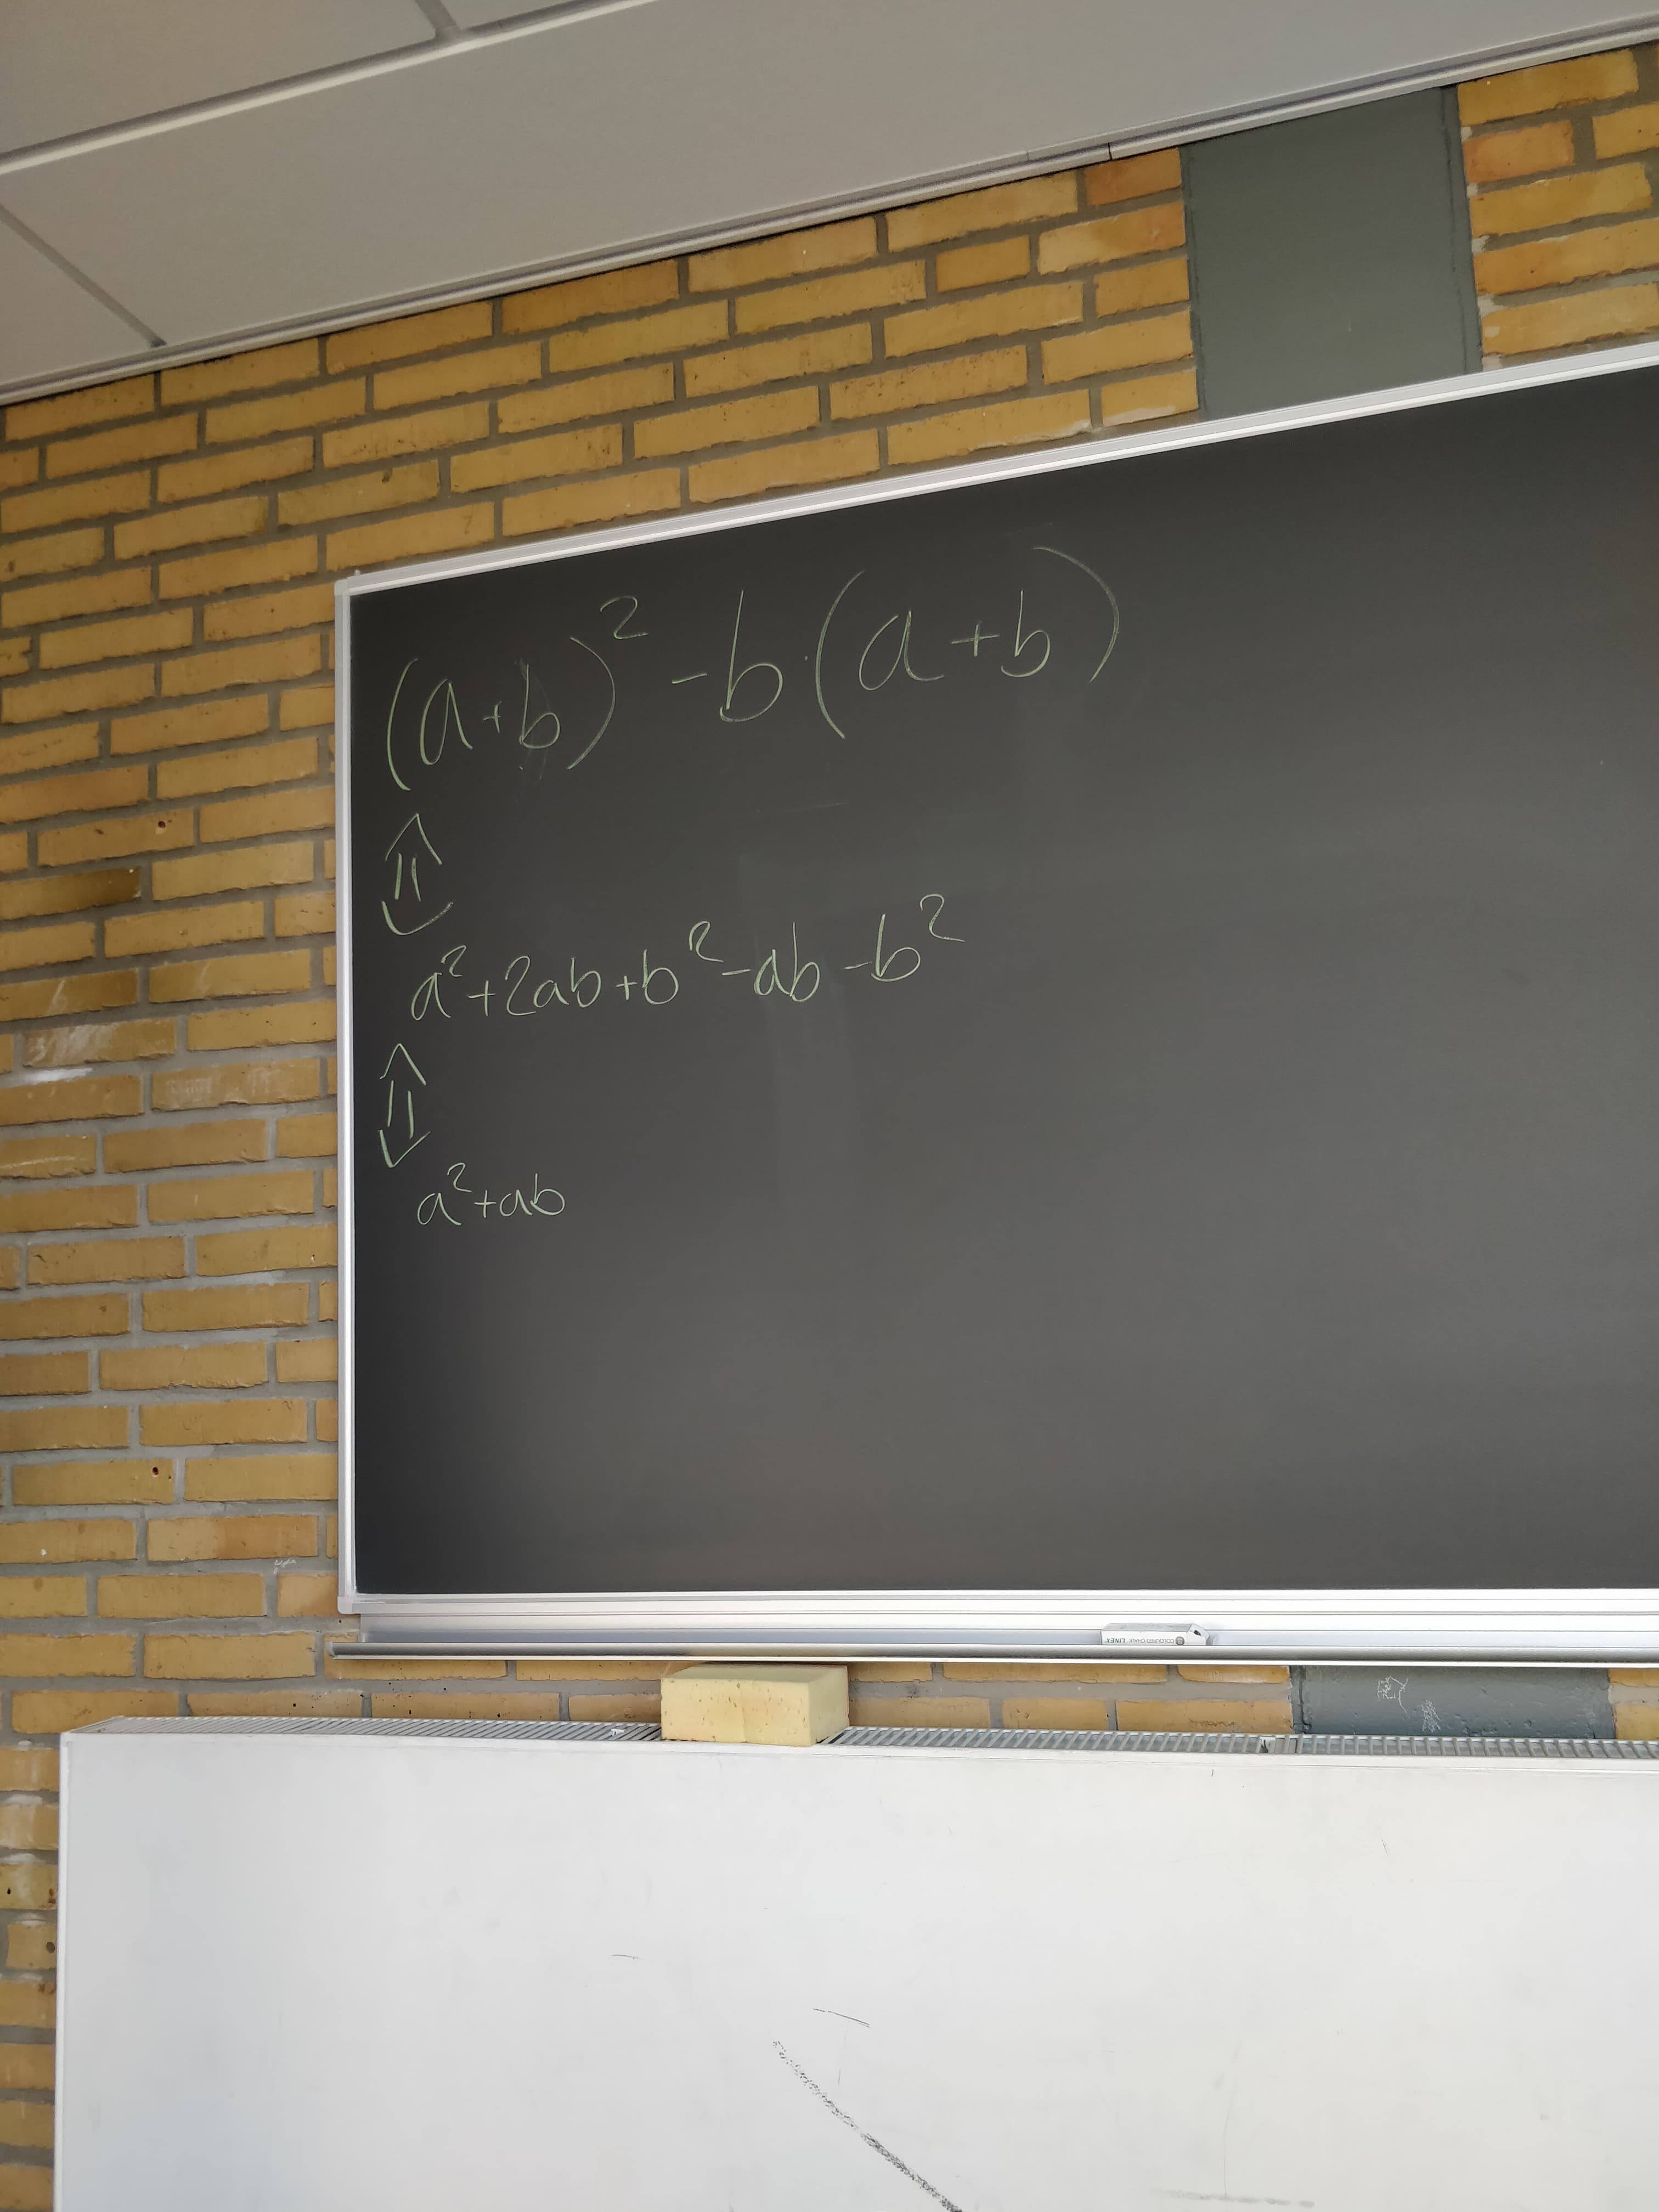 (a+b)² -b·(a+b)
⇕
a²+2ab+b²-ab-b²
⇕
a²+ab
COLOURED CHALK LINEX